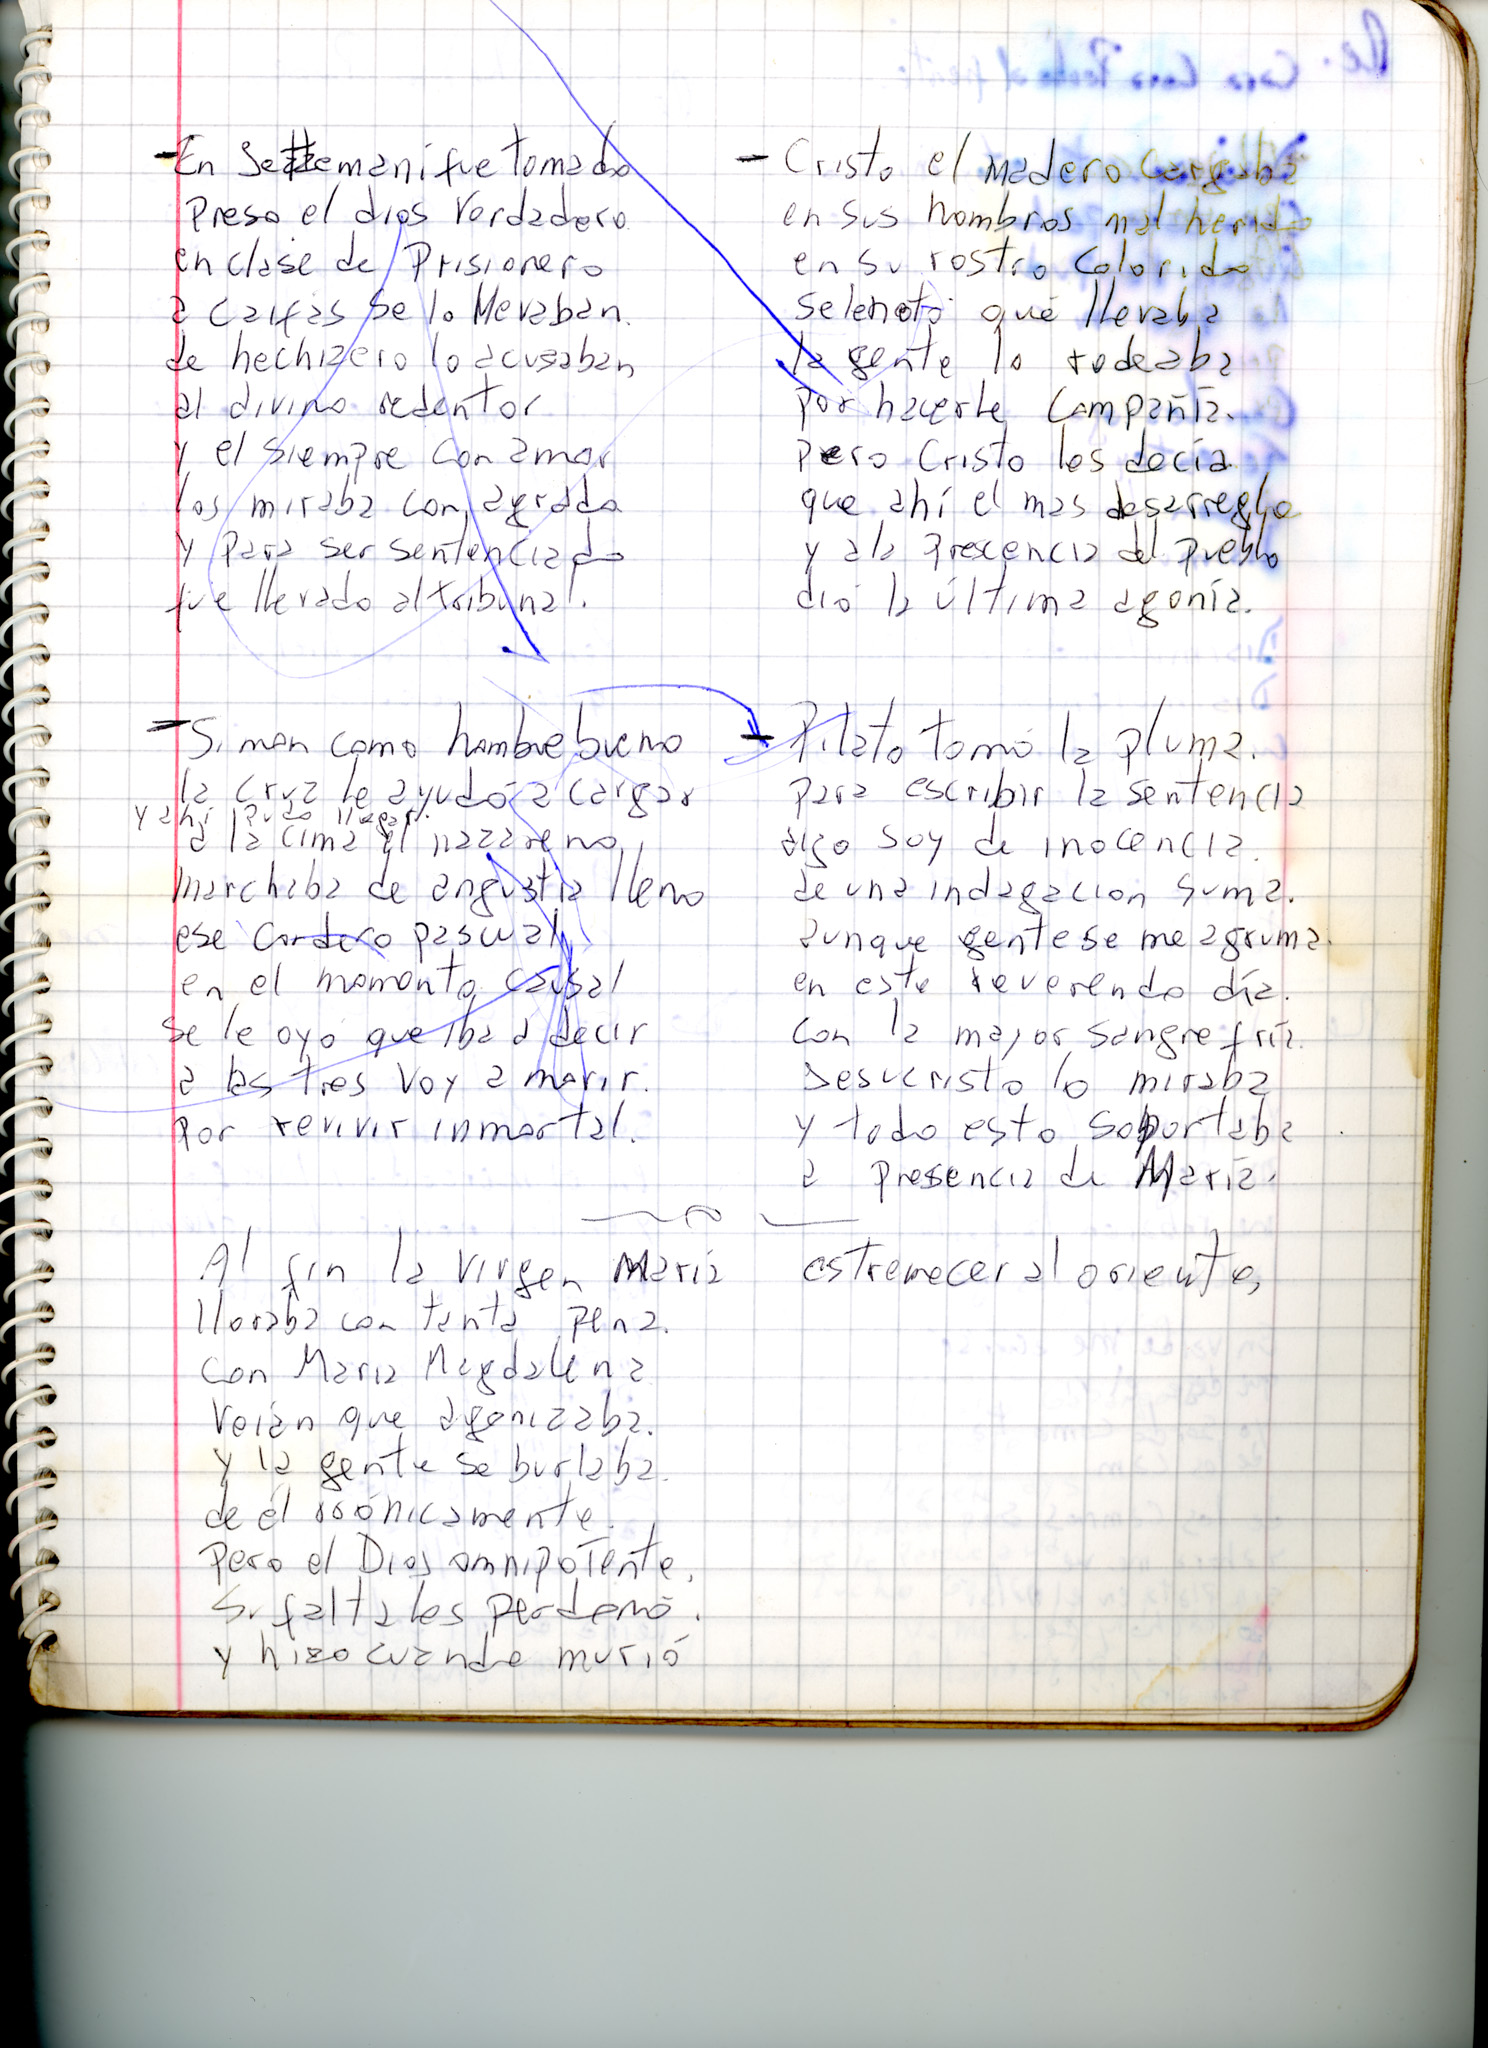 - En Settemani fue tomado
Preso el dios Verdadero
en clase de Prisionero
a Caifas se lo llevaban.
de hechizero lo acusaban
al divino redentor
y el siempre con amor
los miraba con agrado
y para ser sentenciado
fue llevado al tribunal.
- Cristo el Madero Cargaba
en sus hombros mal herido
en su rostro Colorido
se le notó que llevaba
la gente lo rodeaba
por hacerle Compañía.
pero Cristo les decía
que ahí el mas desarreglo
y a la prescencia del pueblo
dió la última agonía.
- Simon como hombre bueno
la cruz le ayudó a cargar
y ahí pudo llegar.
a la cima el nazareno,
marchaba de angustia lleno
ese Cordero pascual,
en el momento causal
se le oyó que iba a decir
a las tres voy a morir.
por revivir inmortal.
- Pilato tomó la pluma.
para escribir la sentencia
digo soy de inocencia.
de una indagación suma.
aunque gente se me agruma.
en este reverendo día.
con la mayor sangre fría.
Jesucristo lo miraba
y todo esto soportaba
a presencia de María.
Al fin la Virgen María
lloraba con tanta pena.
con María Magdalena
Veían que agonizaba.
y la gente se burlaba.
de él irónicamente.
Pero el Dios omnipotente,
su falta les perdonó.
y hizo cuando murió
estremecer al oriente,